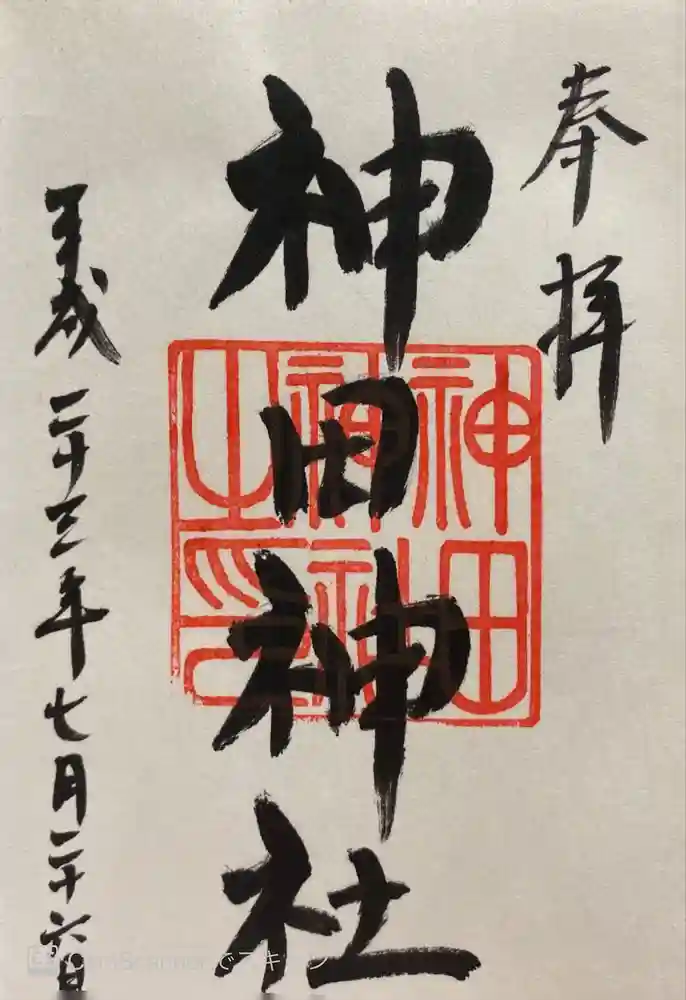 奉拝
神田神社
神田
神社
之印
平成二十三年七月二十六日
CamScannerでスキャン